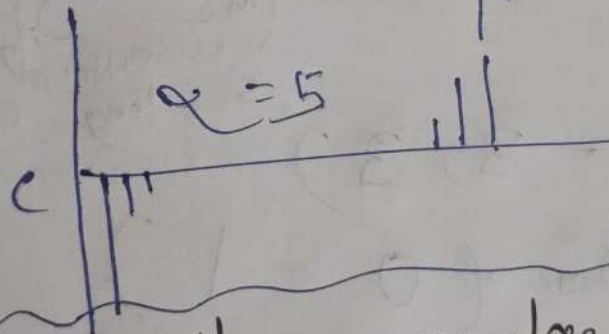 α = 5
C